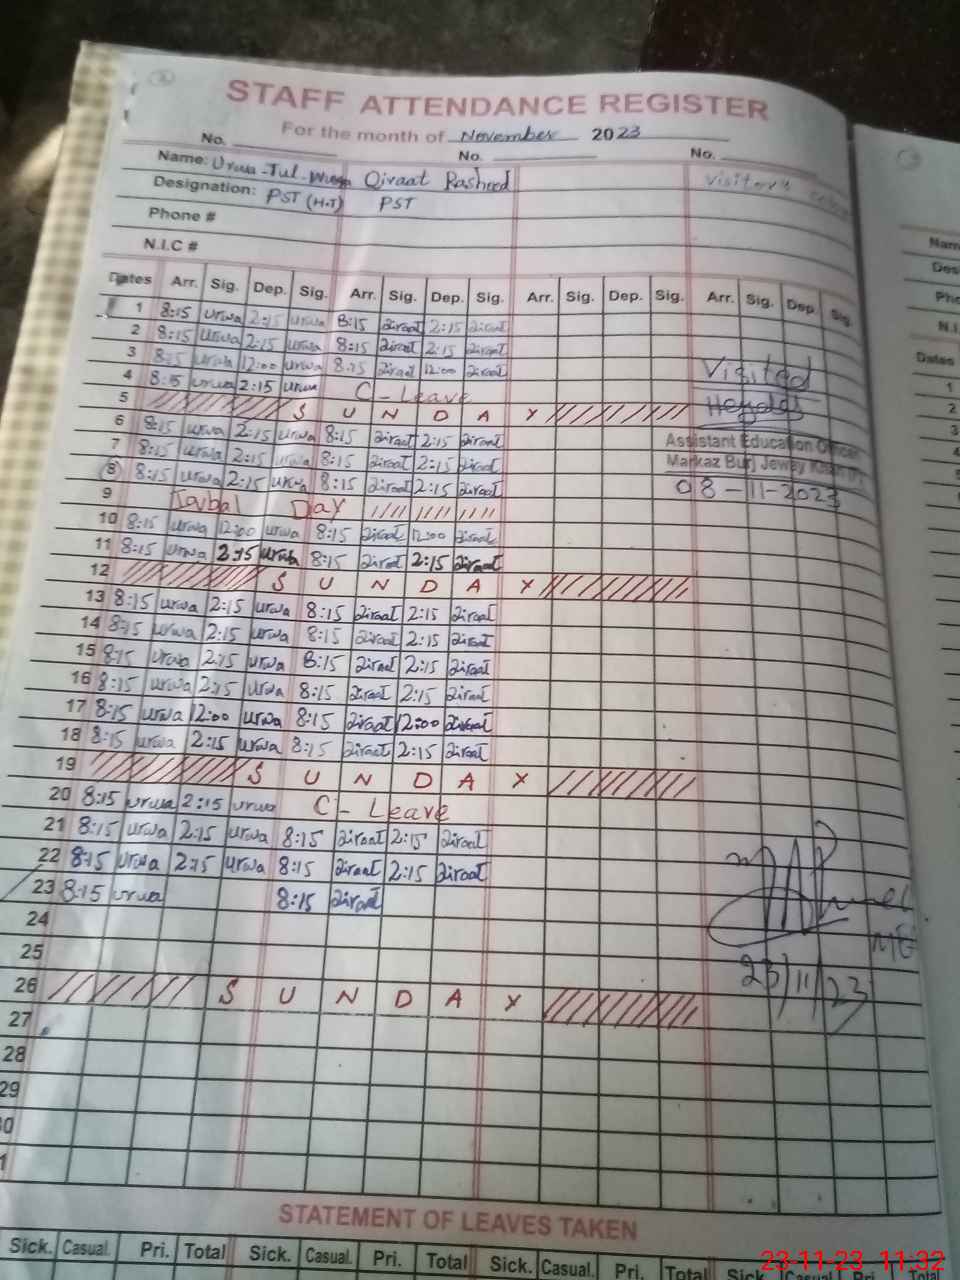 STAFF ATTENDANCE REGISTER
For the month of November 2023
No. No. No.
Name: Urwa-Tul- Qiraat Rasheed Visitor's
Designation: PST (H.T) PST
Phone #
N.I.C #
Dates Arr. Sig. Dep. Sig. Arr. Sig. Dep. Sig. Arr. Sig. Dep. Sig. Arr. Sig. Dep. Sig.
1 8:15 urwa 2:15 urwa 8:15 Qiraat 2:15 Qiraat
2 8:15 urwa 2:15 urwa 8:15 Qiraat 2:15 Qiraat
3 8:15 urwa 12:00 urwa 8:15 Qiraat 12:00 Qiraat
4 8:15 urwa 2:15 urwa C-Leave
Visited
5 S U N D A Y
6 8:15 urwa 2:15 urwa 8:15 Qiraat 2:15 Qiraat
Assistant Education Officer
7 8:15 urwa 2:15 urwa 8:15 Qiraat 2:15 Qiraat
Markaz Burj Jeway Khan
8 8:15 urwa 2:15 urwa 8:15 Qiraat 2:15 Qiraat
08-11-2023
9 Iqbal Day
10 8:15 urwa 12:00 urwa 8:15 Qiraat 12:00 Qiraat
11 8:15 urwa 2:15 urwa 8:15 Qiraat 2:15 Qiraat
12 S U N D A Y
13 8:15 urwa 2:15 urwa 8:15 Qiraat 2:15 Qiraat
14 8:15 urwa 2:15 urwa 8:15 Qiraat 2:15 Qiraat
15 8:15 urwa 2:15 urwa 8:15 Qiraat 2:15 Qiraat
16 8:15 urwa 2:15 urwa 8:15 Qiraat 2:15 Qiraat
17 8:15 urwa 12:00 urwa 8:15 Qiraat 12:00 Qiraat
18 8:15 urwa 2:15 urwa 8:15 Qiraat 2:15 Qiraat
19 S U N D A Y
20 8:15 urwa 2:15 urwa C-Leave
21 8:15 urwa 2:15 urwa 8:15 Qiraat 2:15 Qiraat
22 8:15 urwa 2:15 urwa 8:15 Qiraat 2:15 Qiraat
23 8:15 urwa 8:15 Qiraat
24
25
23/11/23
26 S U N D A Y
27
28
29
30
31
STATEMENT OF LEAVES TAKEN
Sick. Casual. Pri. Total Sick. Casual. Pri. Total Sick. Casual. Pri. Total Sick. Casual. Pri. Total
Dates
1
2
3
23-11-23 11:32